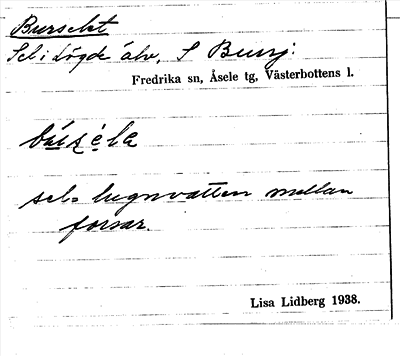 Burselet
Sel i Lögde älv, S Bursj.
Fredrika sn, Åsele tg, Västerbottens l.
sel = lugnvatten mellan
forsar.
Lisa Lidberg 1938.